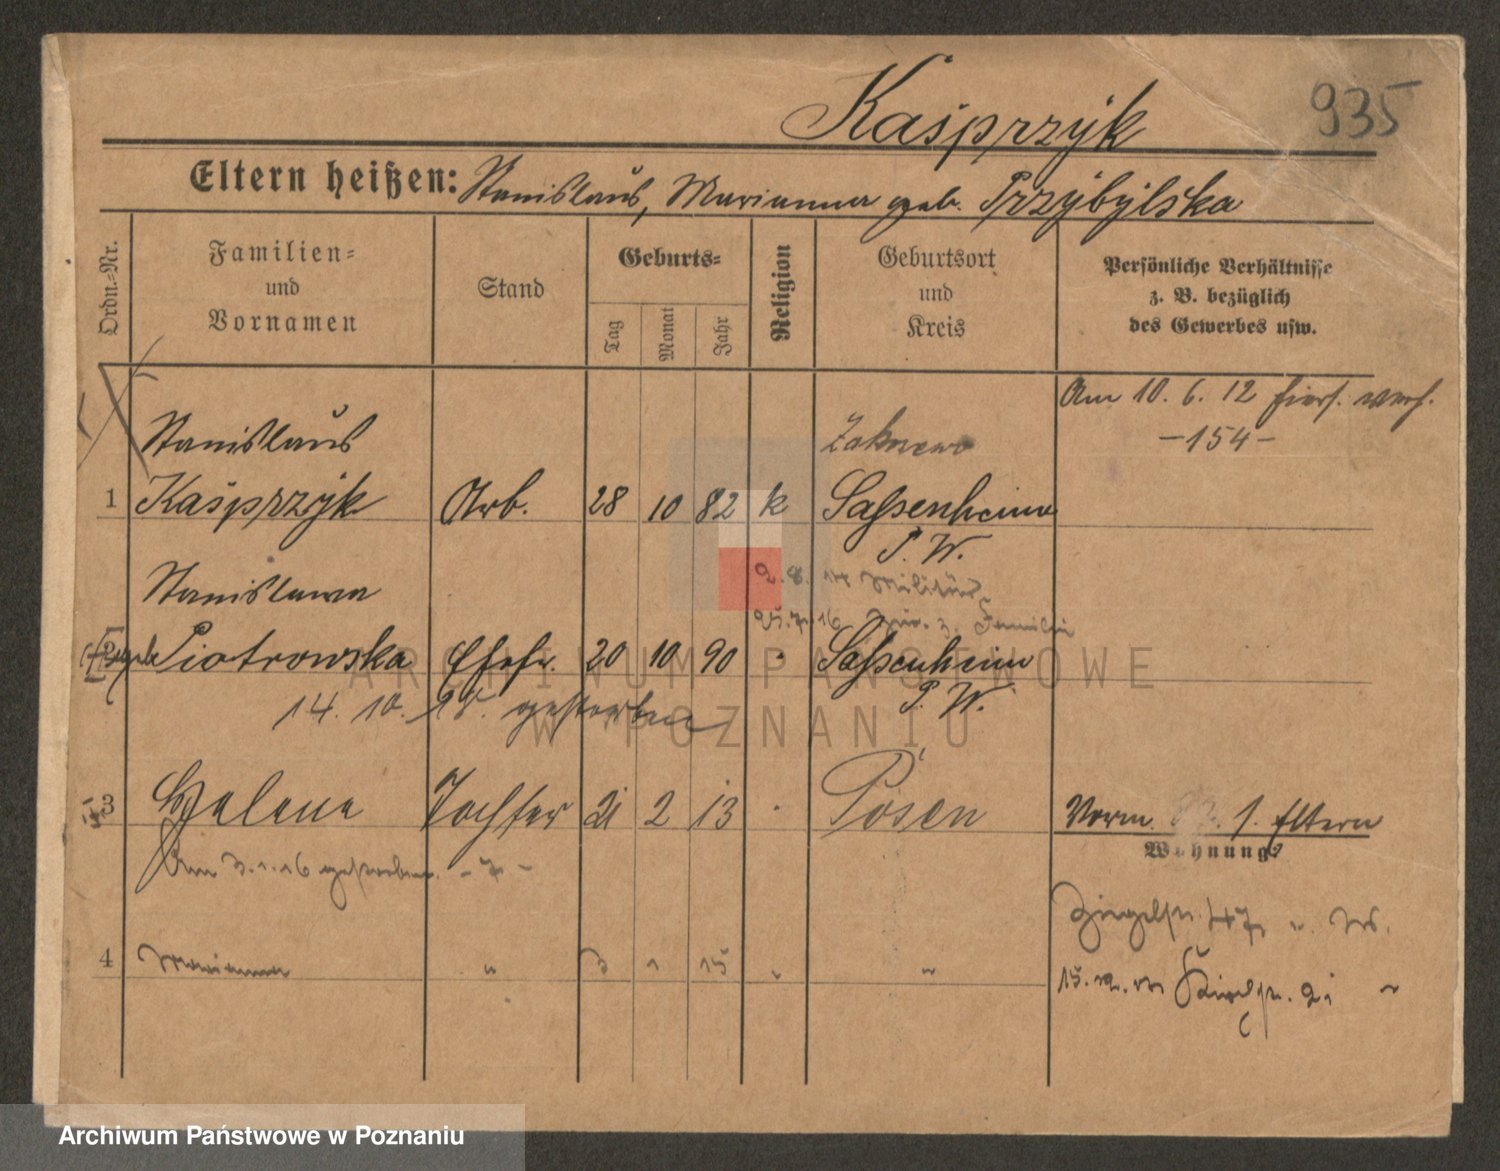 935
Kasprzyk
Eltern heißen: Stanislaus, Marianna geb. Przybylska
Ordn.-Nr.
Familien-
und
Vornamen
Stand
Geburts-
Tag
Monat
Jahr
Religion
Geburtsort
und
Kreis
Persönliche Verhältnisse
z. B. bezüglich
des Gewerbes usw.
Am 10. 6. 12 hiers.
-154-
Stanislaus
1 Kasprzyk Arb. 28 10 82 k Sassenheim
P. W.
Stanislawa
2. 8. 14 Militär
25. 7. 16 zur. z. Familie
2 geb. Piotrowska Ehefr. 20 10 90 Sassenheim
P. W.
14. 10. 18. gestorben
3 Helene Tochter 21 2 13 Posen
Vorm. s. Eltern
Wohnung
Am 3. 1. 16 gestorben. -7-
4 Marianna " 3 1 15 " "
ARCHIWUM PAŃSTWOWE
W POZNANIU
Archiwum Państwowe w Poznaniu